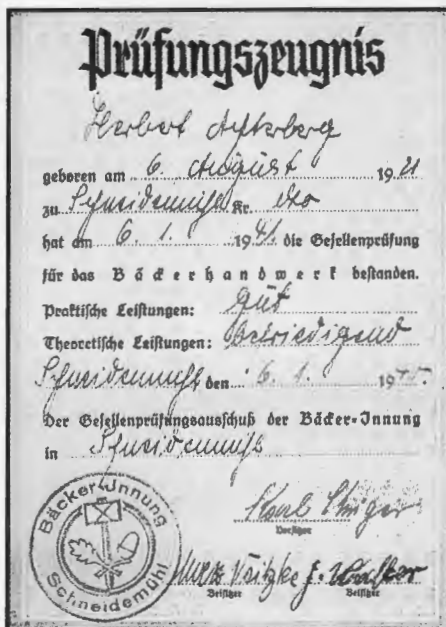 Prüfungszeugnis
Herbert
geboren am 6. August 1921
zu Schneidemühl Kr. dto
hat am 6. 1. 1941 die Gesellenprüfung
für das Bäckerhandwerk bestanden.
Praktische Leistungen: gut
Theoretische Leistungen: befriedigend
Schneidemühl, den 6. 1. 19
Der Gesellenprüfungsausschuß der Bäcker-Innung
in Schneidemühl
Bäcker-Innung
Schneidemühl
Karl
Vorsitzer
Beisitzer Beisitzer